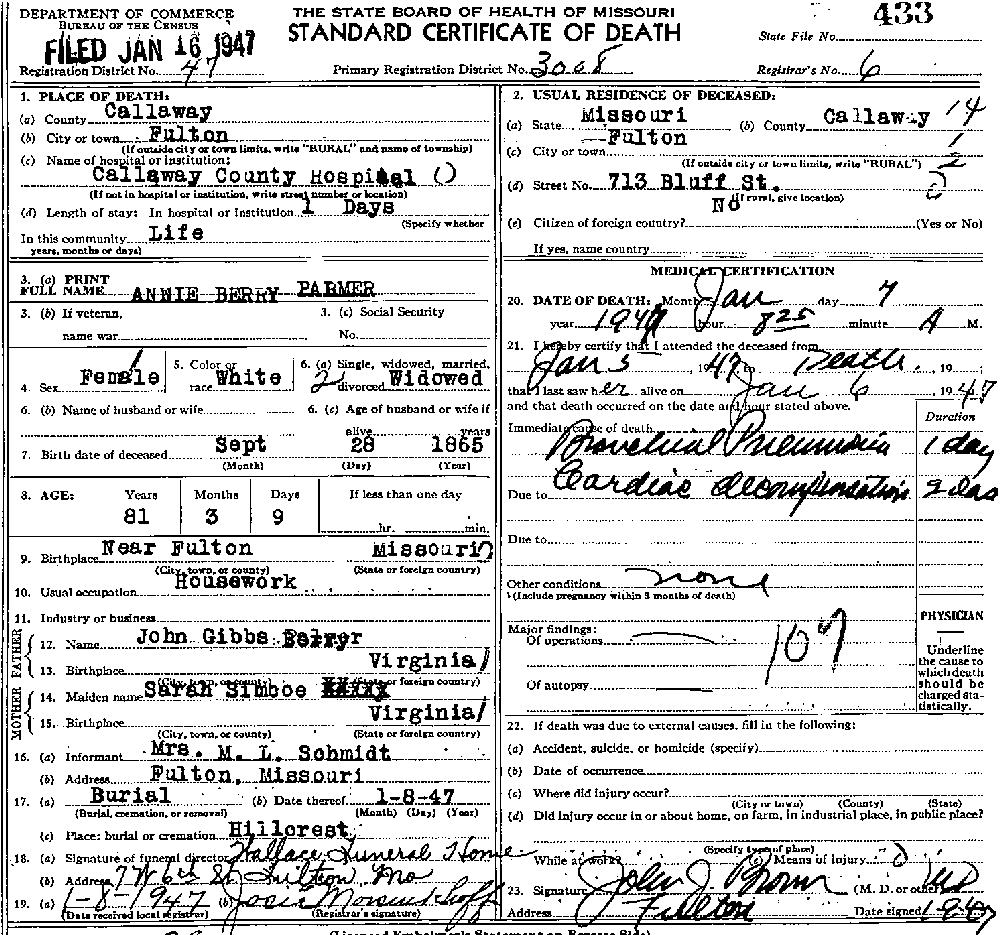 DEPARTMENT OF COMMERCE
BUREAU OF THE CENSUS
THE STATE BOARD OF HEALTH OF MISSOURI
STANDARD CERTIFICATE OF DEATH
433
State File No.
FILED JAN 16 1947
Registration District No. 47
Primary Registration District No. 3008
Registrar's No. 6
1. PLACE OF DEATH:
(a) County Callaway
(b) City or town Fulton
(If outside city or town limits, write "RURAL" and name of township)
(c) Name of hospital or institution:
Callaway County Hospital
(If not in hospital or institution, write street number or location)
(d) Length of stay: In hospital or Institution 1 Days
(Specify whether
In this community Life
years, months or days)
2. USUAL RESIDENCE OF DECEASED:
(a) State Missouri (b) County Callaway 14
(c) City or town Fulton
(If outside city or town limits, write "RURAL")
(d) Street No. 713 Bluff St.
(If rural, give location)
(e) Citizen of foreign country? No (Yes or No)
If yes, name country
3. (a) PRINT
FULL NAME ANNIE BERRY PARMER
3. (b) If veteran,
name war
3. (c) Social Security
No.
4. Sex Female
5. Color or
race White
6. (a) Single, widowed, married,
2 divorced Widowed
6. (b) Name of husband or wife
6. (c) Age of husband or wife if
alive years
7. Birth date of deceased Sept 28 1865
(Month) (Day) (Year)
8. AGE: Years Months Days If less than one day
81 3 9 hr. min.
9. Birthplace Near Fulton Missouri
(City, town, or county) (State or foreign country)
10. Usual occupation Housework
11. Industry or business
FATHER
12. Name John Gibbs
13. Birthplace Virginia
(City, town, or county) (State or foreign country)
MOTHER
14. Maiden name Sarah Simboe
15. Birthplace Virginia
(City, town, or county) (State or foreign country)
16. (a) Informant Mrs. M. L. Schmidt
(b) Address Fulton, Missouri
17. (a) Burial (b) Date thereof 1-8-47
(Burial, cremation, or removal) (Month) (Day) (Year)
(c) Place: burial or cremation Hillcrest
18. (a) Signature of funeral director Wallace Funeral Home
(b) Address 7 W 6th St Fulton Mo
19. (a) 1-8-1947 (b) Josie
(Date received local registrar) (Registrar's signature)
MEDICAL CERTIFICATION
20. DATE OF DEATH: Month Jan day 7
year 1947 hour 8 25 minute A M.
21. I hereby certify that I attended the deceased from
Jan 5 1947 to Death, 19
that I last saw her alive on Jan 6 1947
and that death occurred on the date and hour stated above.
Duration
Immediate cause of death
Bronchial Pneumonia 1 day
Due to Cardiac decompensation 2 das
Due to
Other conditions none
(Include pregnancy within 3 months of death)
Major findings:
Of operations
107
Of autopsy
PHYSICIAN
Underline
the cause to
which death
should be
charged sta-
tistically.
22. If death was due to external causes, fill in the following:
(a) Accident, suicide, or homicide (specify)
(b) Date of occurrence
(c) Where did injury occur?
(City or town) (County) (State)
(d) Did injury occur in or about home, on farm, in industrial place, in public place?
(Specify type of place)
While at work? (e) Means of injury
23. Signature John J. Brown (M. D. or other) MD
Address Fulton Date signed